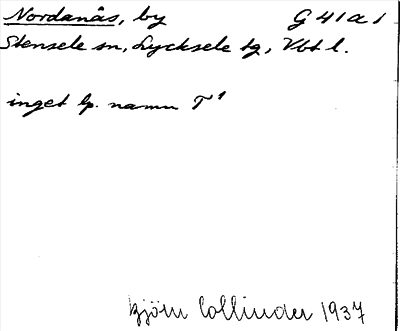 Nordanås, by G 41 a 1
Stensele sn, Lycksele tg, Vbt l.
inget lp. namn T¹
Björn Collinder 1937